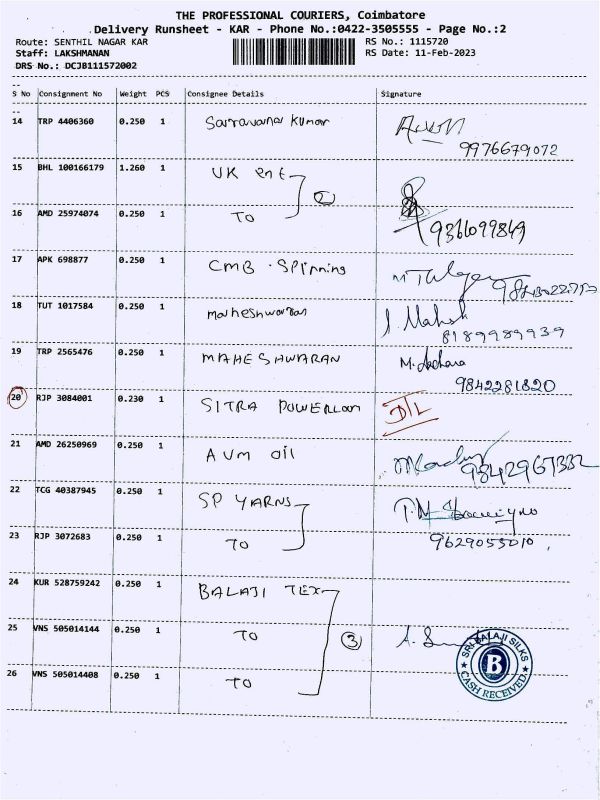 THE PROFESSIONAL COURIERS, Coimbatore
Delivery Runsheet - KAR - Phone No.:0422-3505555 - Page No.:2
Route: SENTHIL NAGAR KAR RS No.: 1115720
Staff: LAKSHMANAN RS Date: 11-Feb-2023
DRS No.: DCJB111572002
S No Consignment No Weight PCS Consignee Details Signature
14 TRP 4406360 0.250 1 Saravana Kumar
9976679072
15 BHL 100166179 1.260 1 UK ent
2
16 AMD 25974074 0.250 1 TO
9366099849
17 APK 698877 0.250 1 CMB . Spinning
18 TUT 1017584 0.250 1 maheshwaran J. Mahesh
8189989939
19 TRP 2565476 0.250 1 MAHESHWARAN
9842281820
20 RJP 3084001 0.230 1 SITRA POWERLOOM D/L
21 AMD 26250969 0.250 1 AVM oil
22 TCG 40387945 0.250 1 SP YARNS
23 RJP 3072683 0.250 1 TO 9629055010,
24 KUR 528759242 0.250 1 BALAJI TEX
25 VNS 505014144 0.250 1 TO 3
SRI BALAJI SILKS
B
CASH RECEIVED
26 VNS 505014408 0.250 1 TO